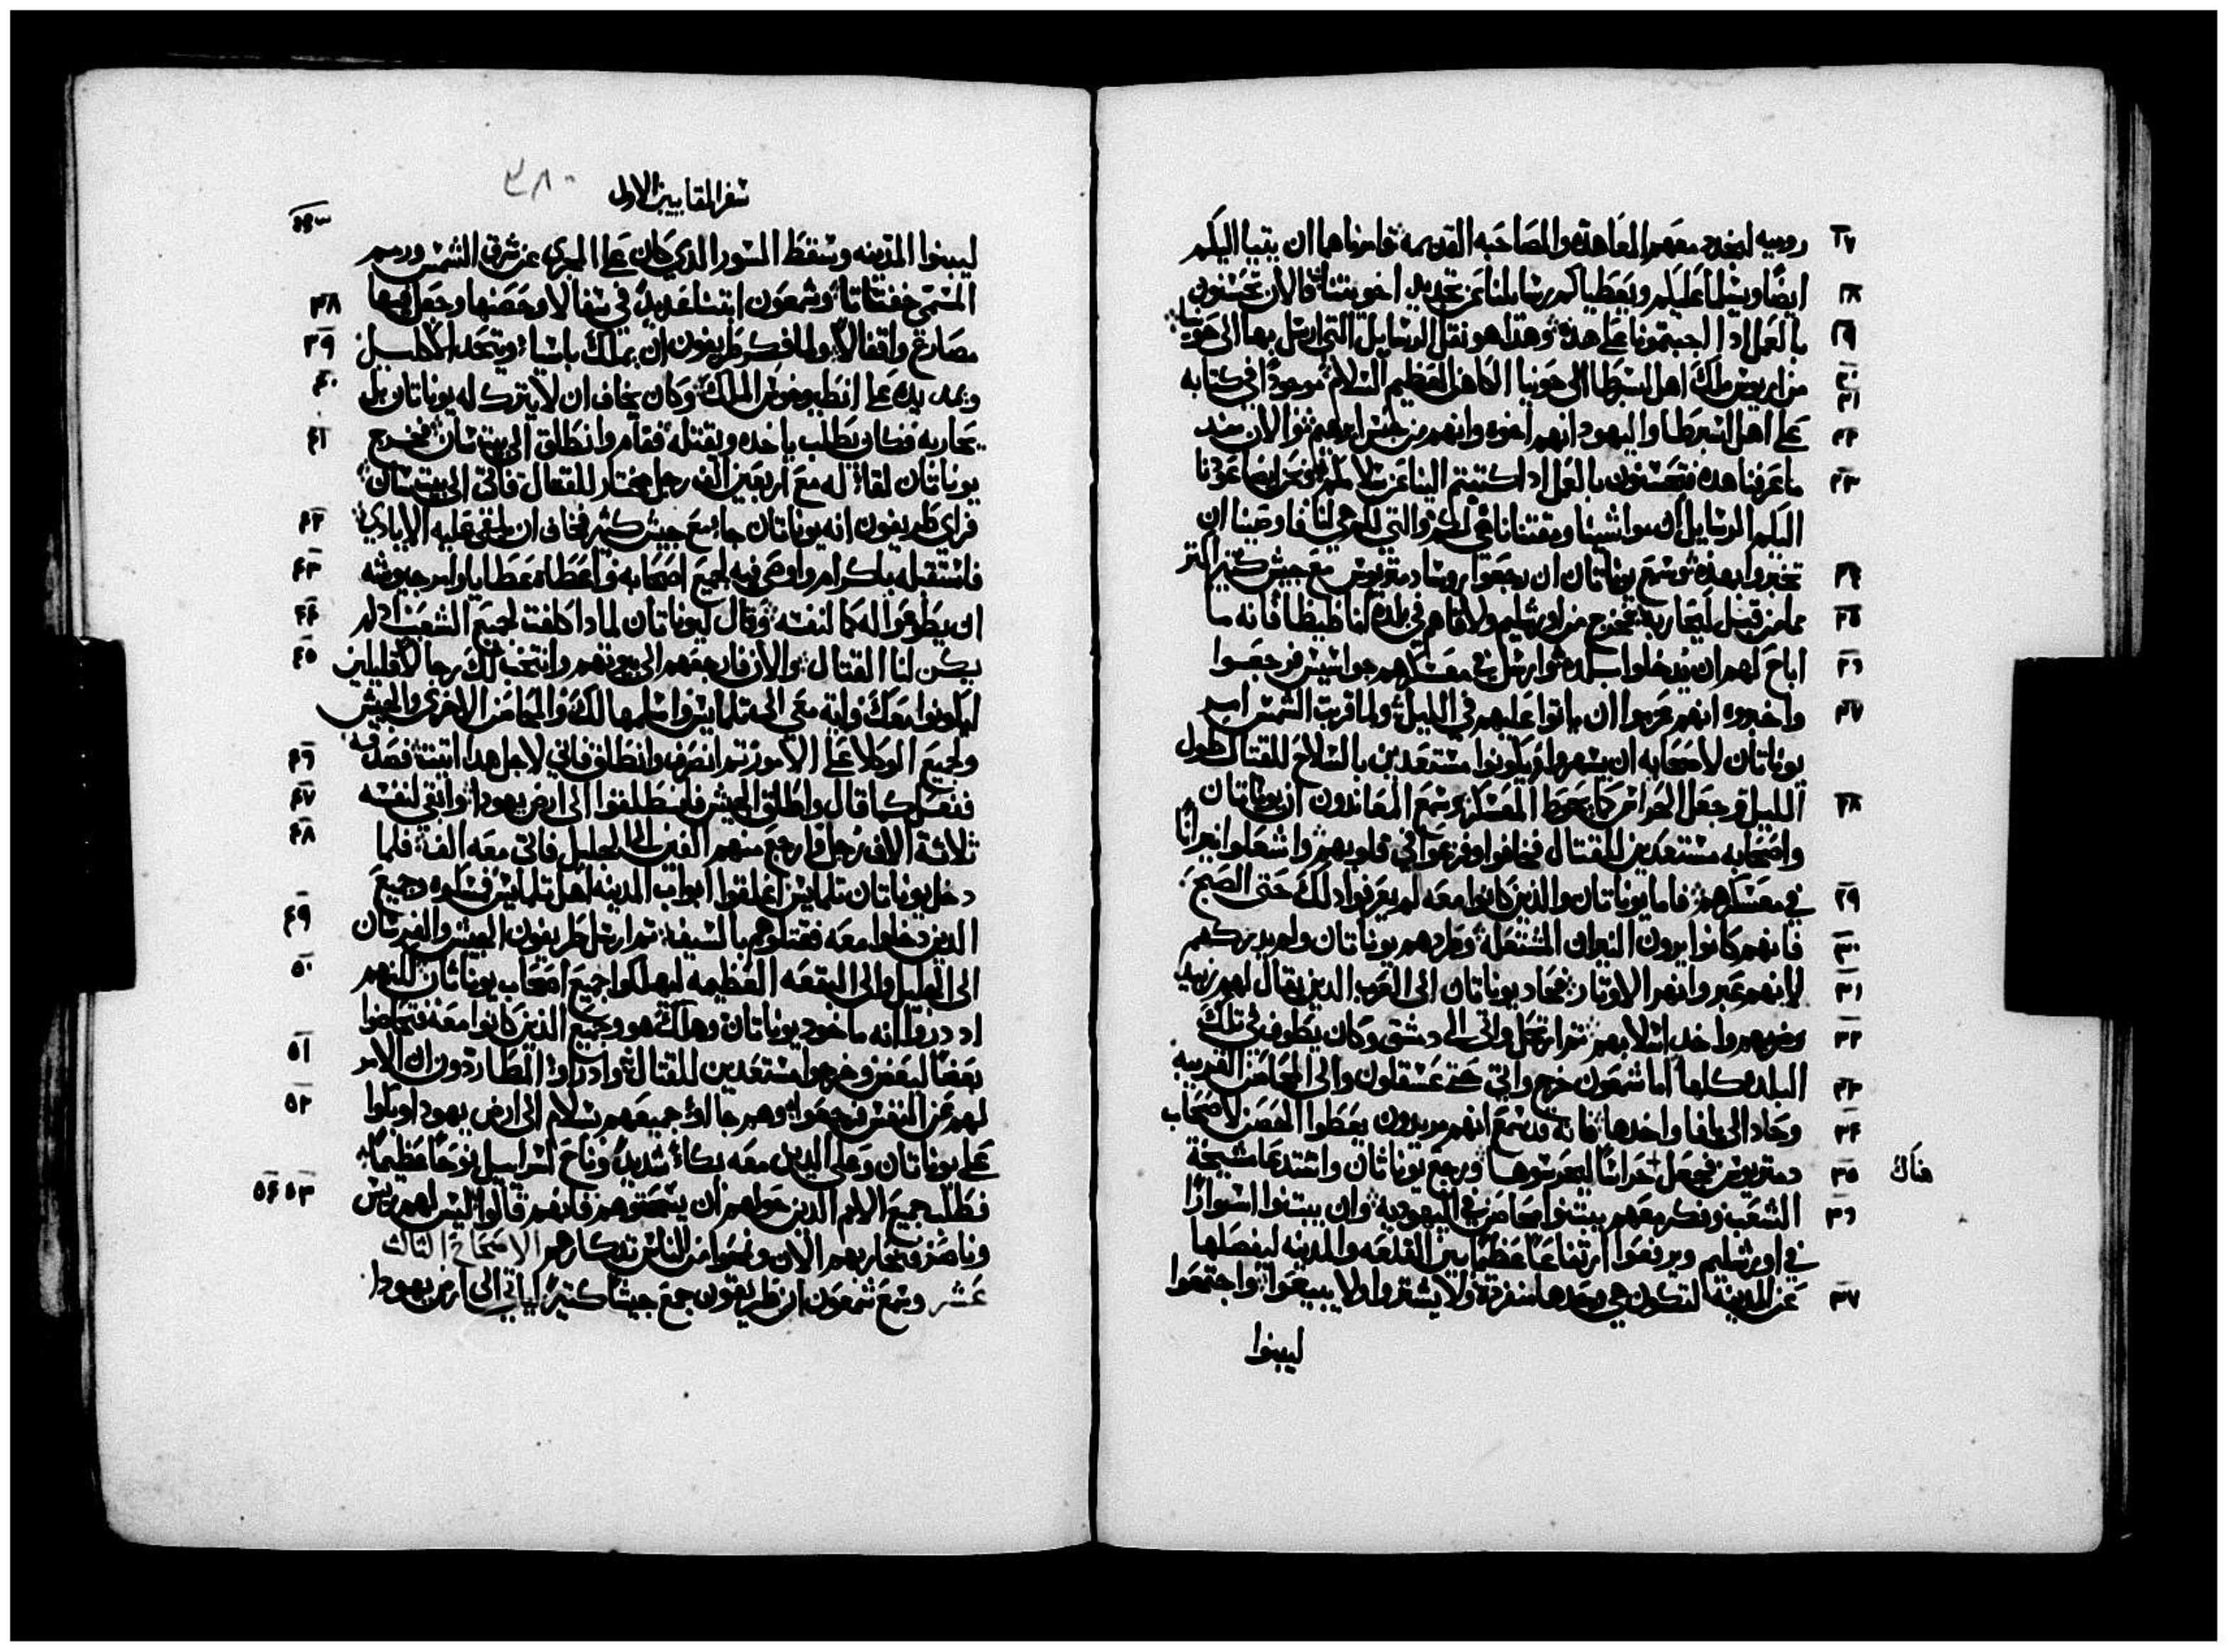 ٢٧ روميه لنجدد معهم المعاهده والمصاحبه القديمه فامرناهما ان ياتيا اليكم
٢٨ ايضًا ويسلما عليكم ويعطياكم رسايلنا عن تجديد اخويتنا والان تحسنون
٢٩ بالعمل اذا اجبتمونا على هذه وهذا هو نقل الرسايل التي ارسل بها الى حونيا
٣٠ من اريوس ملك اهل اسبرطا الى حونيا الكاهن العظيم السلام
٣١ موجودًا في كتابه
٣٢ على اهل اسبرطا واليهود انهم اخوه وانهم من جنس ابرهيم والان منذ
٣٣ ما عرفنا هذه فتحسنون بالعمل اذا كتبتم الينا عن سلامكم ونحن ايضا عرفنا
اليكم الرسايل ان مواشينا ومقتنانا هي لكم والتي لكم هي لنا فاوصينا ان
٢٤ تخبروا بهذه وسمع يوناتان ان رجعوا روسا دمتريوس مع جيش كثير اكثر
٢٥ مما من قبل ليحاربه فخرج من اورشليم ولاقاهم في بلدة اماطيطا فانه ما
٢٦ اباح لهم ان يدخلوا بلده وارسل في معسكرهم جواسيس فرجعوا
٢٧ واخبروه انهم عزموا ان ياتوا عليهم في الليل ولما قربت الشمس امر
يوناتان لاصحابه ان يسهروا ويكونوا مستعدين بالسلاح للقتال طول
٢٨ الليل وجعل الحراس كما يحوط المعسكر وسمع المعاندون ان يوناتان
واصحابه مستعدين للقتال فخافوا وفزعوا في قلوبهم واشعلوا نيرانًا
٢٩ في معسكرهم فاما يوناتان والذين كانوا معه لم يعرفوا ذلك حتى الصبح
٣٠ فانهم كانوا يرون النيران المشتعله وطردهم يوناتان ولم يدركهم
٣١ لانهم عبروا نهر الاوتار فحاد يوناتان الى العرب الذين يقال لهم زبيد
٣٢ وضربهم واخذ اسلابهم ثم ارتحل واتى الى دمشق وكان يطوف في تلك
٣٣ البلده كلها اما شمعون خرج واتى حتى عسقلون والى المحاصن القريبه
٣٤ وحاد الى يافا واخذها فانه قد سمع انهم يريدون يعطوا الحصن لاصحاب
٣٥ دمتريوس فجعل حراسًا ليحرسوها ورجع يوناتان واستدعا مشيخة
هناك
٣٦ الشعب وفكر معهم يبتنوا محاصن في اليهوديه وان يبتنوا اسوارًا
في اورشليم ويرفعوا ارتفاعًا عظمًا بين القلعه والمدينه ليفصلها
٣٧ عن المدينة لتكون هي وحدها منفردة ولا يشتروا ولا يبيعوا واجتمعوا
ليبنوا
سفر المقابيين الاول
٢٨٠
ليبنوا المدينه وسقط السور الذي كان على المجرى عن شرق الشمس ورمم
٣٨ المسمى خفتاتا وشمعون ابتنا عديد في سفالا وحصنها وجعل فيها
٣٩ مصارع واقفالاً ولما فكر طريفون ان يملك باسيا ويتخذ الاكليل
٤٠ ويمد يده على انطيوخوس الملك وكان يخاف ان لا يتركه يوناتان بل
٤١ يحاربه فكان يطلب ياخده ويقتله فقام وانطلق الى بيت سان فخرج
يوناتان لقاء له مع اربعين الف رجل مختار للقتال فاتى الى بيت سان
٤٢ فراى طريفون انه يوناتان جاء مع جيش كثير فخاف ان يلقي عليه الايادي
٤٣ فاستقبله باكرام واوصى به لجميع اصحابه واعطاه عطايا وامر جيوشه
٤٤ ان يطيعوا له كما لنفسه وقال ليوناتان لماذا كلفت لجميع الشعب اذ لم
٤٥ يكن لنا القتال والان فارجعهم الى بيوتهم وانتخب لك رجالاً قليلين
ليكونوا معك وايه معي الى تلمايس واسلمها لك والمحاصن الاخرى والجيش
٤٦ ولجميع الوكلا على الامور ثم انصرف وانطلق فاني لاجل هذا اتيت فصدقه
٤٧ ففعل كما قال واطلق الجيش فانطلقوا الى ارض يهودا وابقى لنفسه
٤٨ ثلاثة الاف رجل وارجع منهم الفين الى الجليل فاتى معه الف فلما
دخل يوناتان تلمايس اغلقوا ابواب المدينه اهل تلمايس ومسكوه وجميع
٤٩ الذين دخلوا معه فقتلوهم بالسيف ثم ارسل طريفون الجيش والفرسان
٥٠ الى الجليل والى البقعه العظيمه ليهلكوا جميع اصحاب يوناتان لكنهم
اذ دروا انه ماخود يوناتان وهلك هو وجميع الذين كانوا معه فتحاضوا
٥١ بعضًا لبعض وخرجوا مستعدين للقتال وادراوا المطاردون ان الامر
٥٢ لهم عن النفس فرجعوا وهم جااوا جميعهم بسلام الى ارض يهودا وبكوا
على يوناتان وعلى الذين معه بكاء شديد وناح اسراييل نوحًا عظيمًا
٥٣ ٥٤ فطلب جميع الامم الذين حولهم ان يسحقوهم فانهم قالوا ليس لهم ريس
وناصر فنحاربهم الان ونمحوا من الناس تذكارهم الاصحاح الثالث
عشر وسمع شمعون ان طريفون جمع جيشًا كثيرًا لياتي الى ارض يهودا